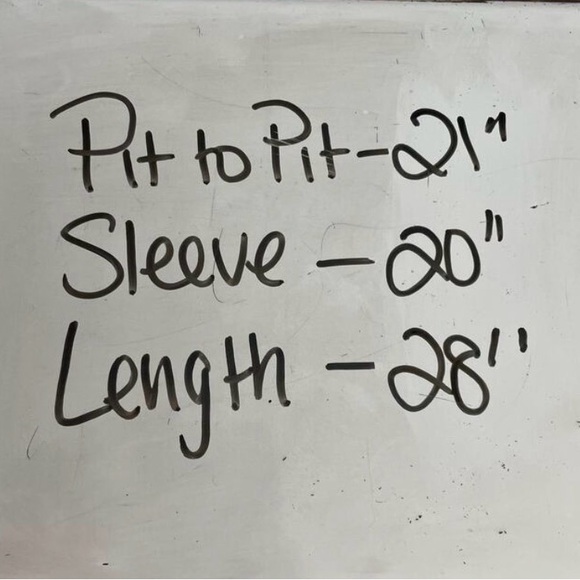 Pit to Pit - 21"
Sleeve - 20"
Length - 28"